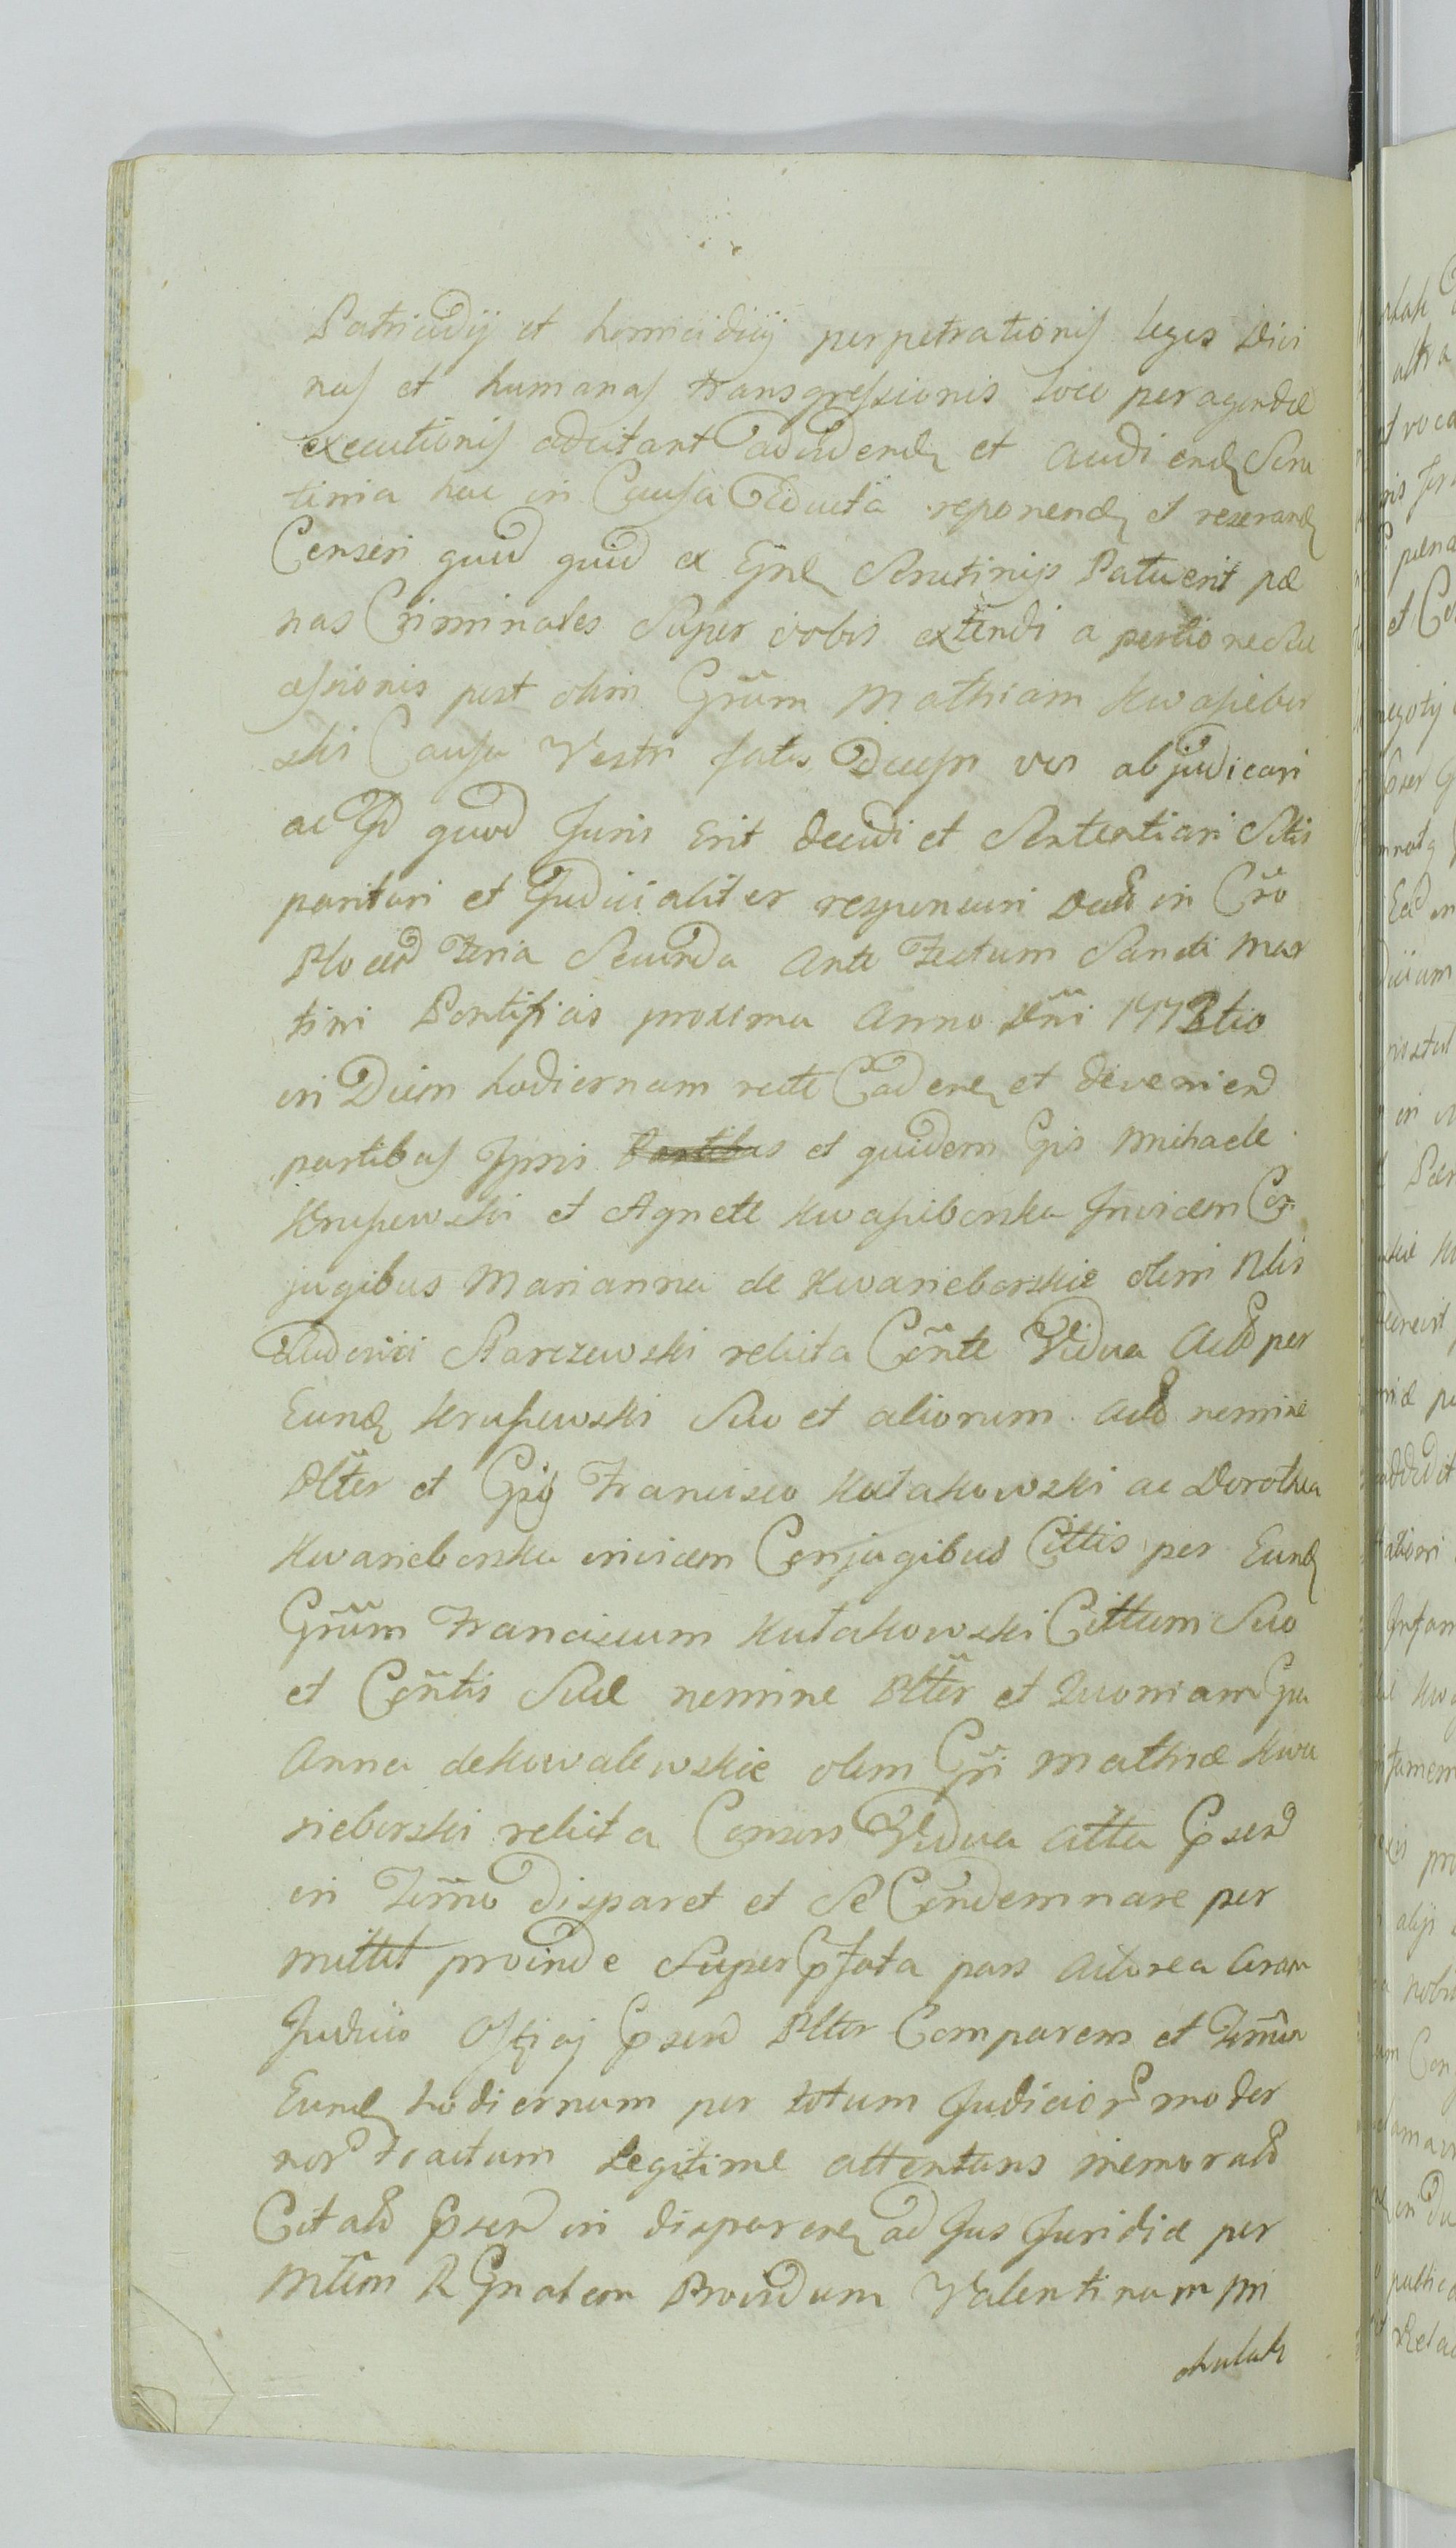 Patricidij et homicidiij perpetrationis leges Divi
nas et humanas transgressionis loco peragendæ
executionis adcitant ad videndꝫ et audiendꝫ Scru
tinia hac in Causa Educta reponendꝫ et reserandꝫ
Censeri quid quid ex Ejsdꝫ Scrutinijs Patuerit pæ
nas Criminales Super vobis extendi a portione Suc
cessionis post olim Grum Mathiam Kwasiebor
ski Causa Vestri fatis Decessi vos abjudicari
ac Id quod Juris Erit Decidi et Sententiari Sitis
parituri et Judicialiter responsuri Datt in Cro
Plocen Feria Secunda Ante Festum Sancti Mar
tini Pontificis proxima Anno Dni 1773tio
in Diem hodiernam recte Cadenꝫ et devenien
partibus Ipsis Partibus et quidem Gis Michaele
Krupewski et Agnete Kwasiborska Invicem Con
jugibus Marianna de Kwasieborskie olim Nlis
Ludovici Starczewski relicta Cnte Vidua Actb per
Eundꝫ Krupewski Suo et aliorum Actb nomine
Plter et Gsis Francisco Kutakowski ac Dorothea
Kwasieborska invicem Conjugibus Cittis per Eundꝫ
Grum Franciscum Kutakowski Cittum Suo
et Cntis Suæ nomine Plter et Quoniam Gsa
Anna de Kowalewskie olim Gri Mathiæ Kwa
sieborski relicta Consors Vidua Citta Psen
in Termo disparet et Se Condemnare per
mittit proinde Super Pfata pars Actorea Coram
Judicio Psen Plter Comparens et Termin
Eundꝫ hodiernum per totum Judicior moder
nor tractum Legitime attentans memorat
Citat Psen in disparenꝫ ad Jus Juridice per
Mtem R Gnalem Providum Valentinum Mi
chalak